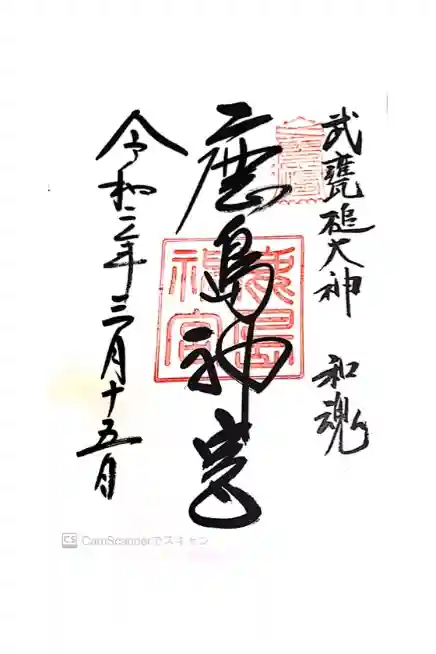 武甕槌大神 和魂
鹿島神宮
鹿島神宮
令和三年三月十五日
CS CamScannerでスキャン